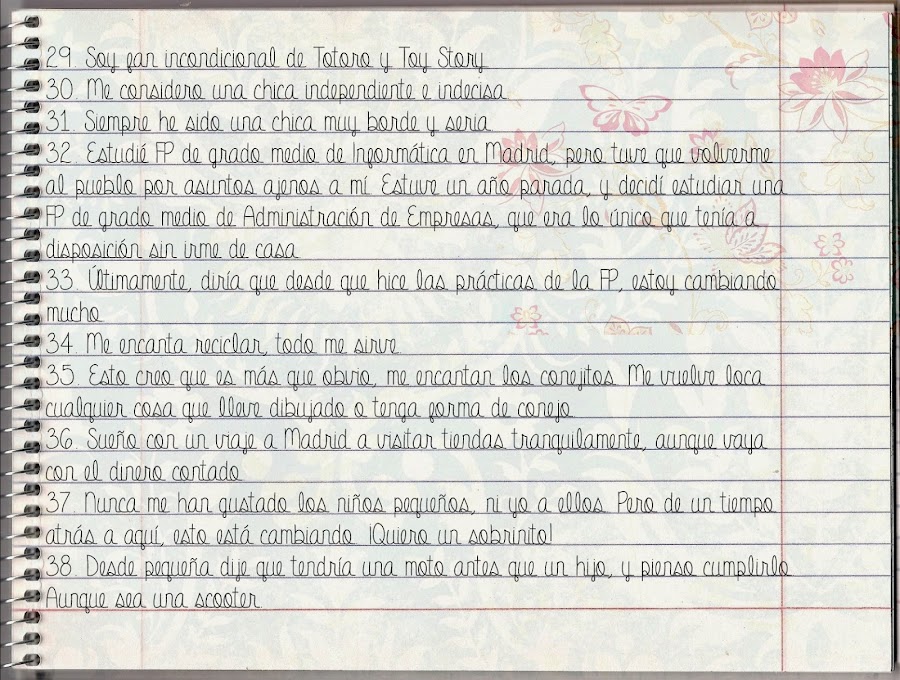 29. Soy fan incondicional de Totoro y Toy Story
30. Me considero una chica independiente e indecisa
31. Siempre he sido una chica muy borde y seria
32. Estudié FP de grado medio de Informática en Madrid, pero tuve que volverme
al pueblo por asuntos ajenos a mí. Estuve un año parada, y decidí estudiar una
FP de grado medio de Administración de Empresas, que era lo único que tenía a
disposición sin irme de casa
33. Últimamente, diría que desde que hice las prácticas de la FP, estoy cambiando
mucho
34. Me encanta reciclar, todo me sirve
35. Esto creo que es más que obvio, me encantan los conejitos. Me vuelve loca
cualquier cosa que lleve dibujado o tenga forma de conejo
36. Sueño con un viaje a Madrid a visitar tiendas tranquilamente, aunque vaya
con el dinero contado
37. Nunca me han gustado los niños pequeños, ni yo a ellos. Pero de un tiempo
atrás a aquí, esto está cambiando. ¡Quiero un sobrinito!
38. Desde pequeña dije que tendría una moto antes que un hijo, y pienso cumplirlo
Aunque sea una scooter